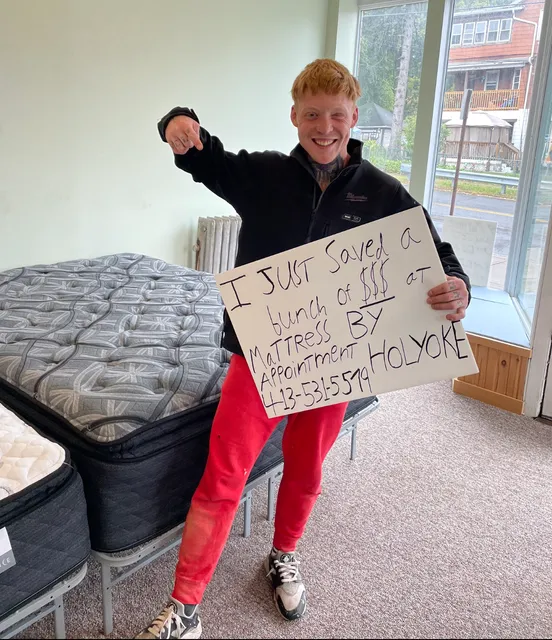 I JUST Saved a
bunch of $$$ at
MATTRESS BY
Appointment HOLYOKE
413-531-5579